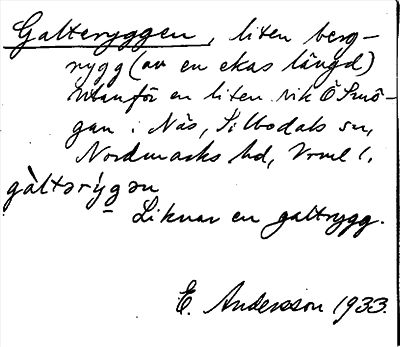 Galteryggen, liten berg-
rygg (av en ekas längd)
utanför en liten vik Ö Smö-
gan i Näs, Silbodals sn,
Nordmarks hd, Vrml l.
gàltərýgən
Liknar en galtrygg.
E. Andersson 1933.